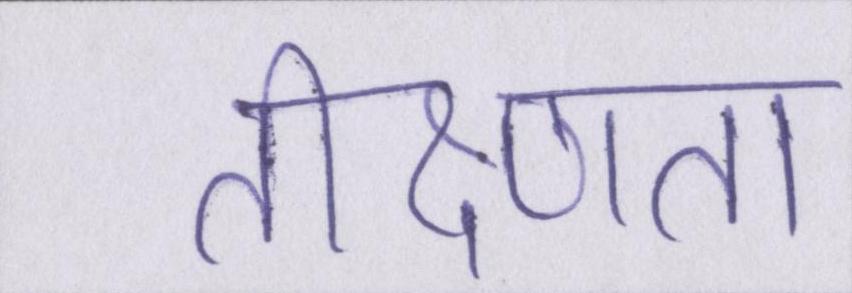 तीक्ष्णता